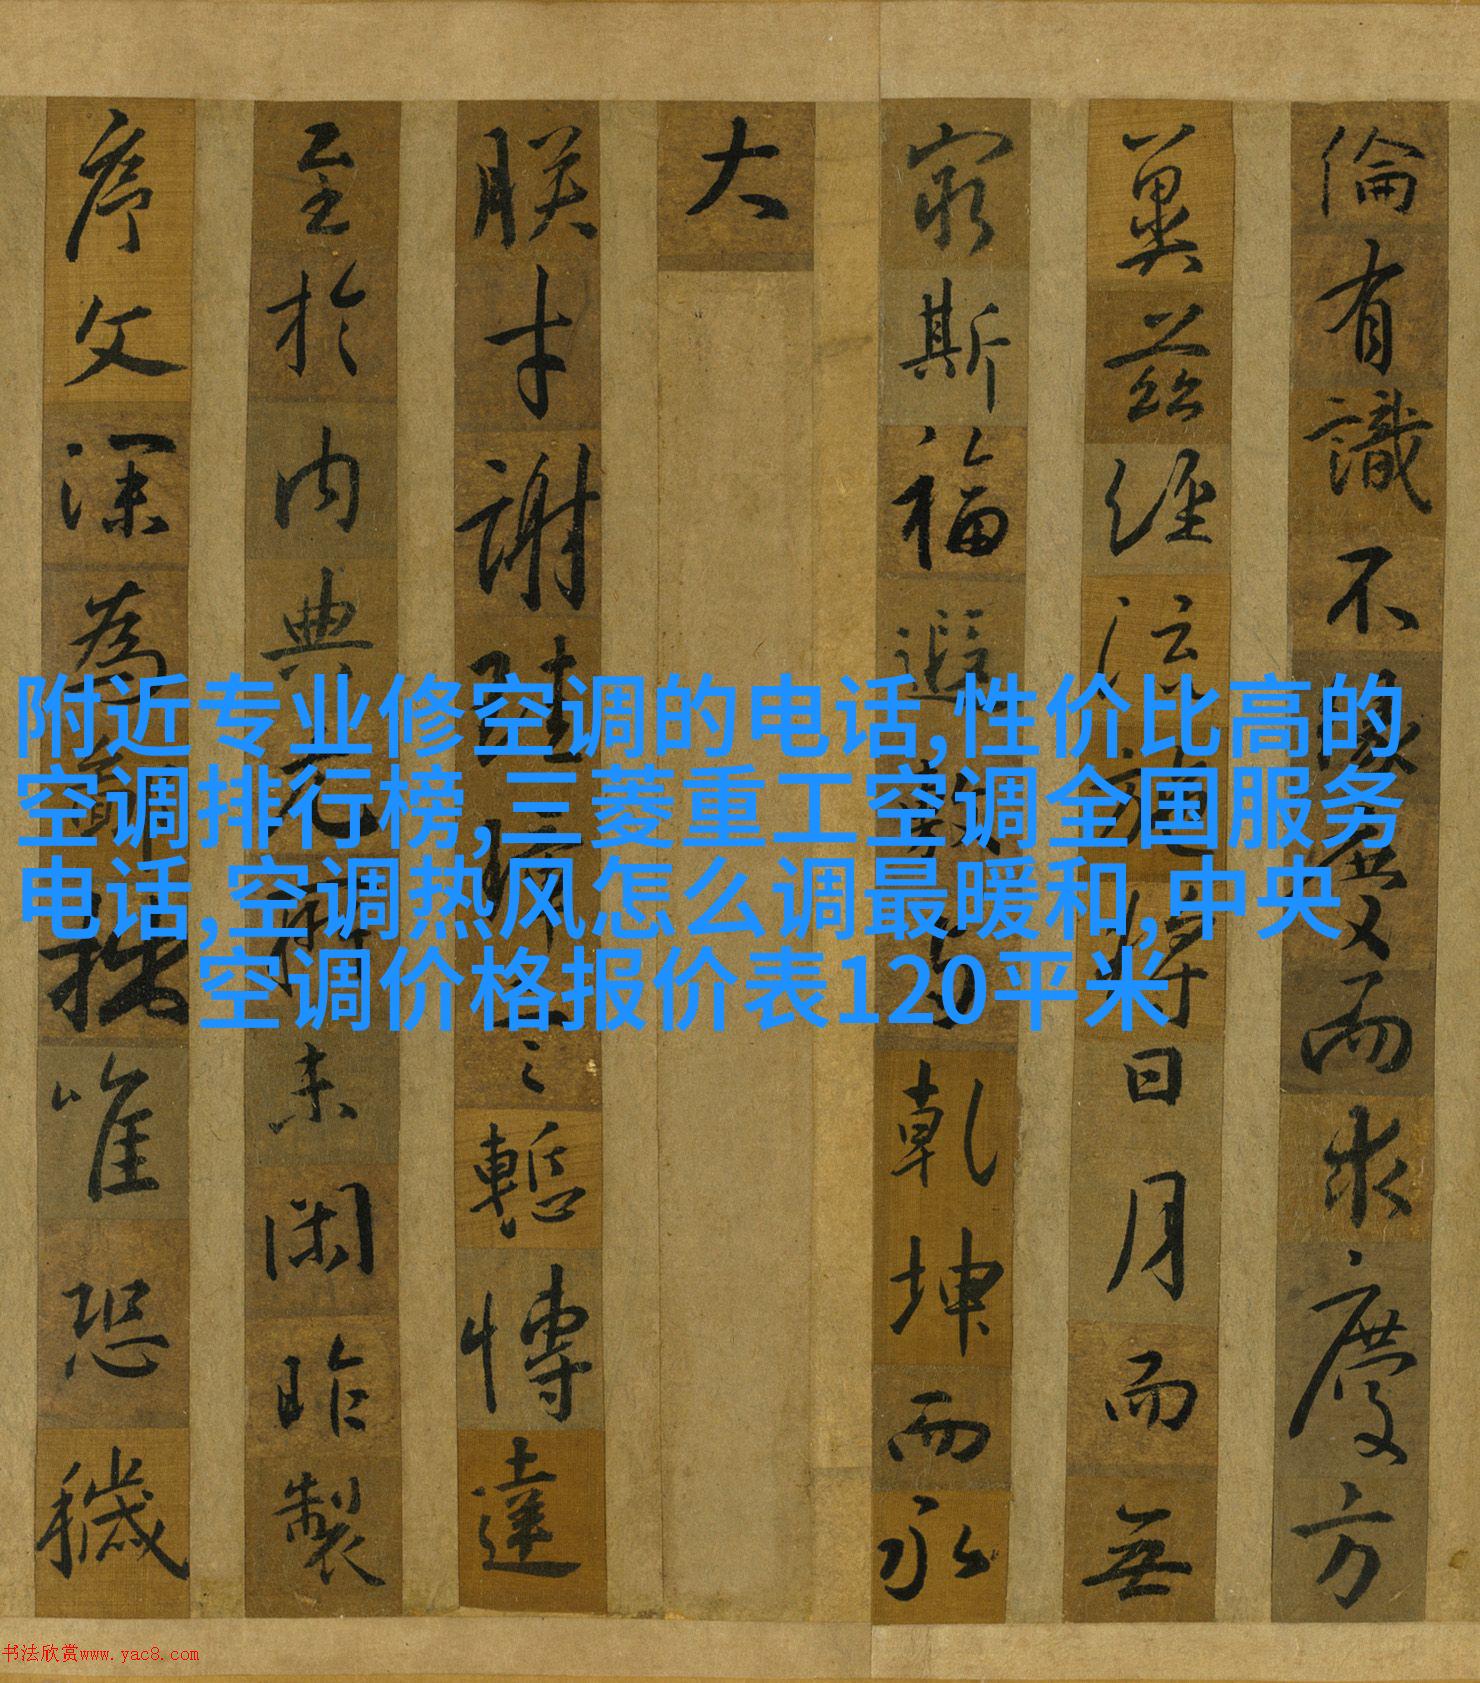 倫有識不緣慶而求慶方
冀茲經流施將日月而無
窮斯福遐敷與乾坤而永
大
朕才謝珪璋言慙博達
至於內典尤所未閑昨製
序文深為鄙拙唯恐穢
附近专业修空调的电话,性价比高的
空调排行榜,三菱重工空调全国服务
电话,空调热风怎么调最暖和,中央
空调价格报价表120平米
书法欣赏www.yac8.com